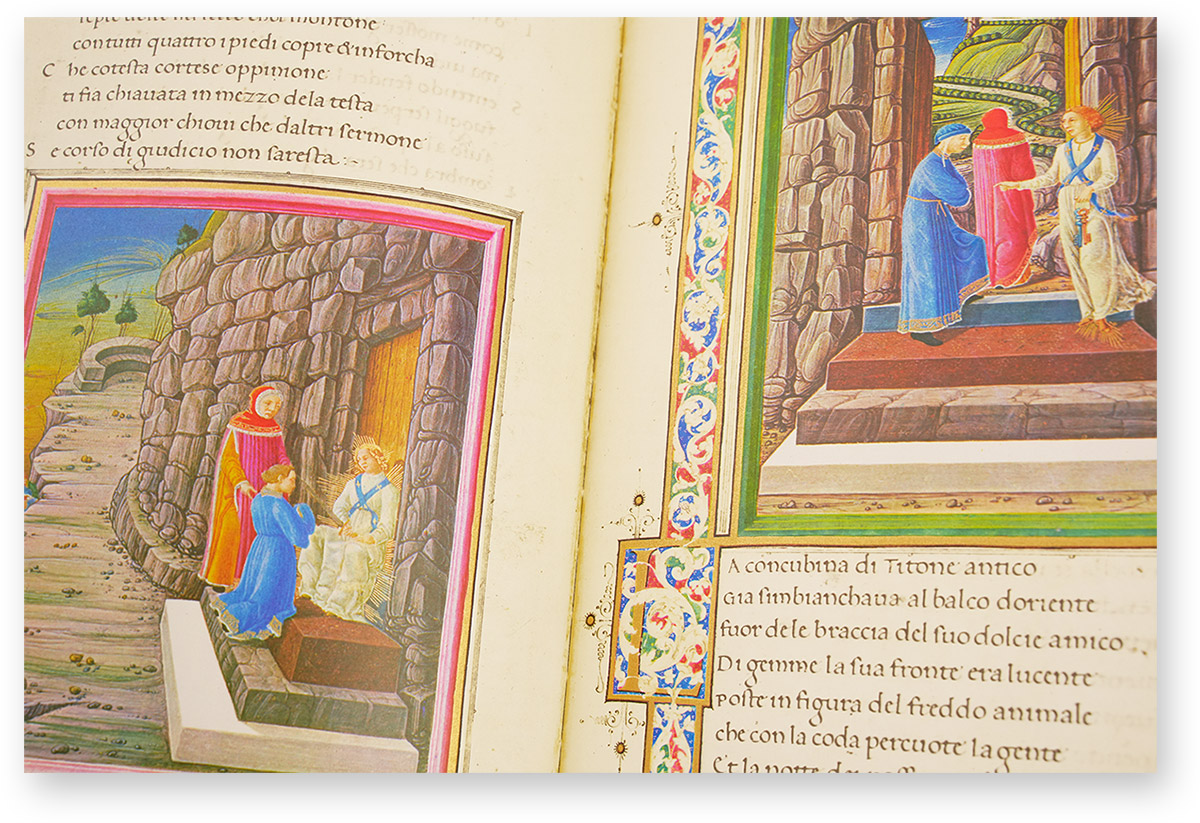 con tutti quattro i piedi copre & inforcha
C he cotesta cortese oppinione
ti fia chiauata in mezzo dela testa
con maggior chioui che daltri sermone
S e corso di giudicio non saresta
LA concubina di Titone antico
Gia sinbianchaua al balco doriente
fuor de le braccia del suo dolcie amico
Di gemme la sua fronte era lucente
poste in figura del freddo animale
che con la coda percuote la gente
Et la notte